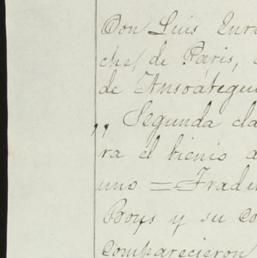 Don Luis Enri
che/ de Paris,
de Ansoátegui
„ Segunda cla
ra el bienio a
uno = Fradu
Boys y su co
comparecieron